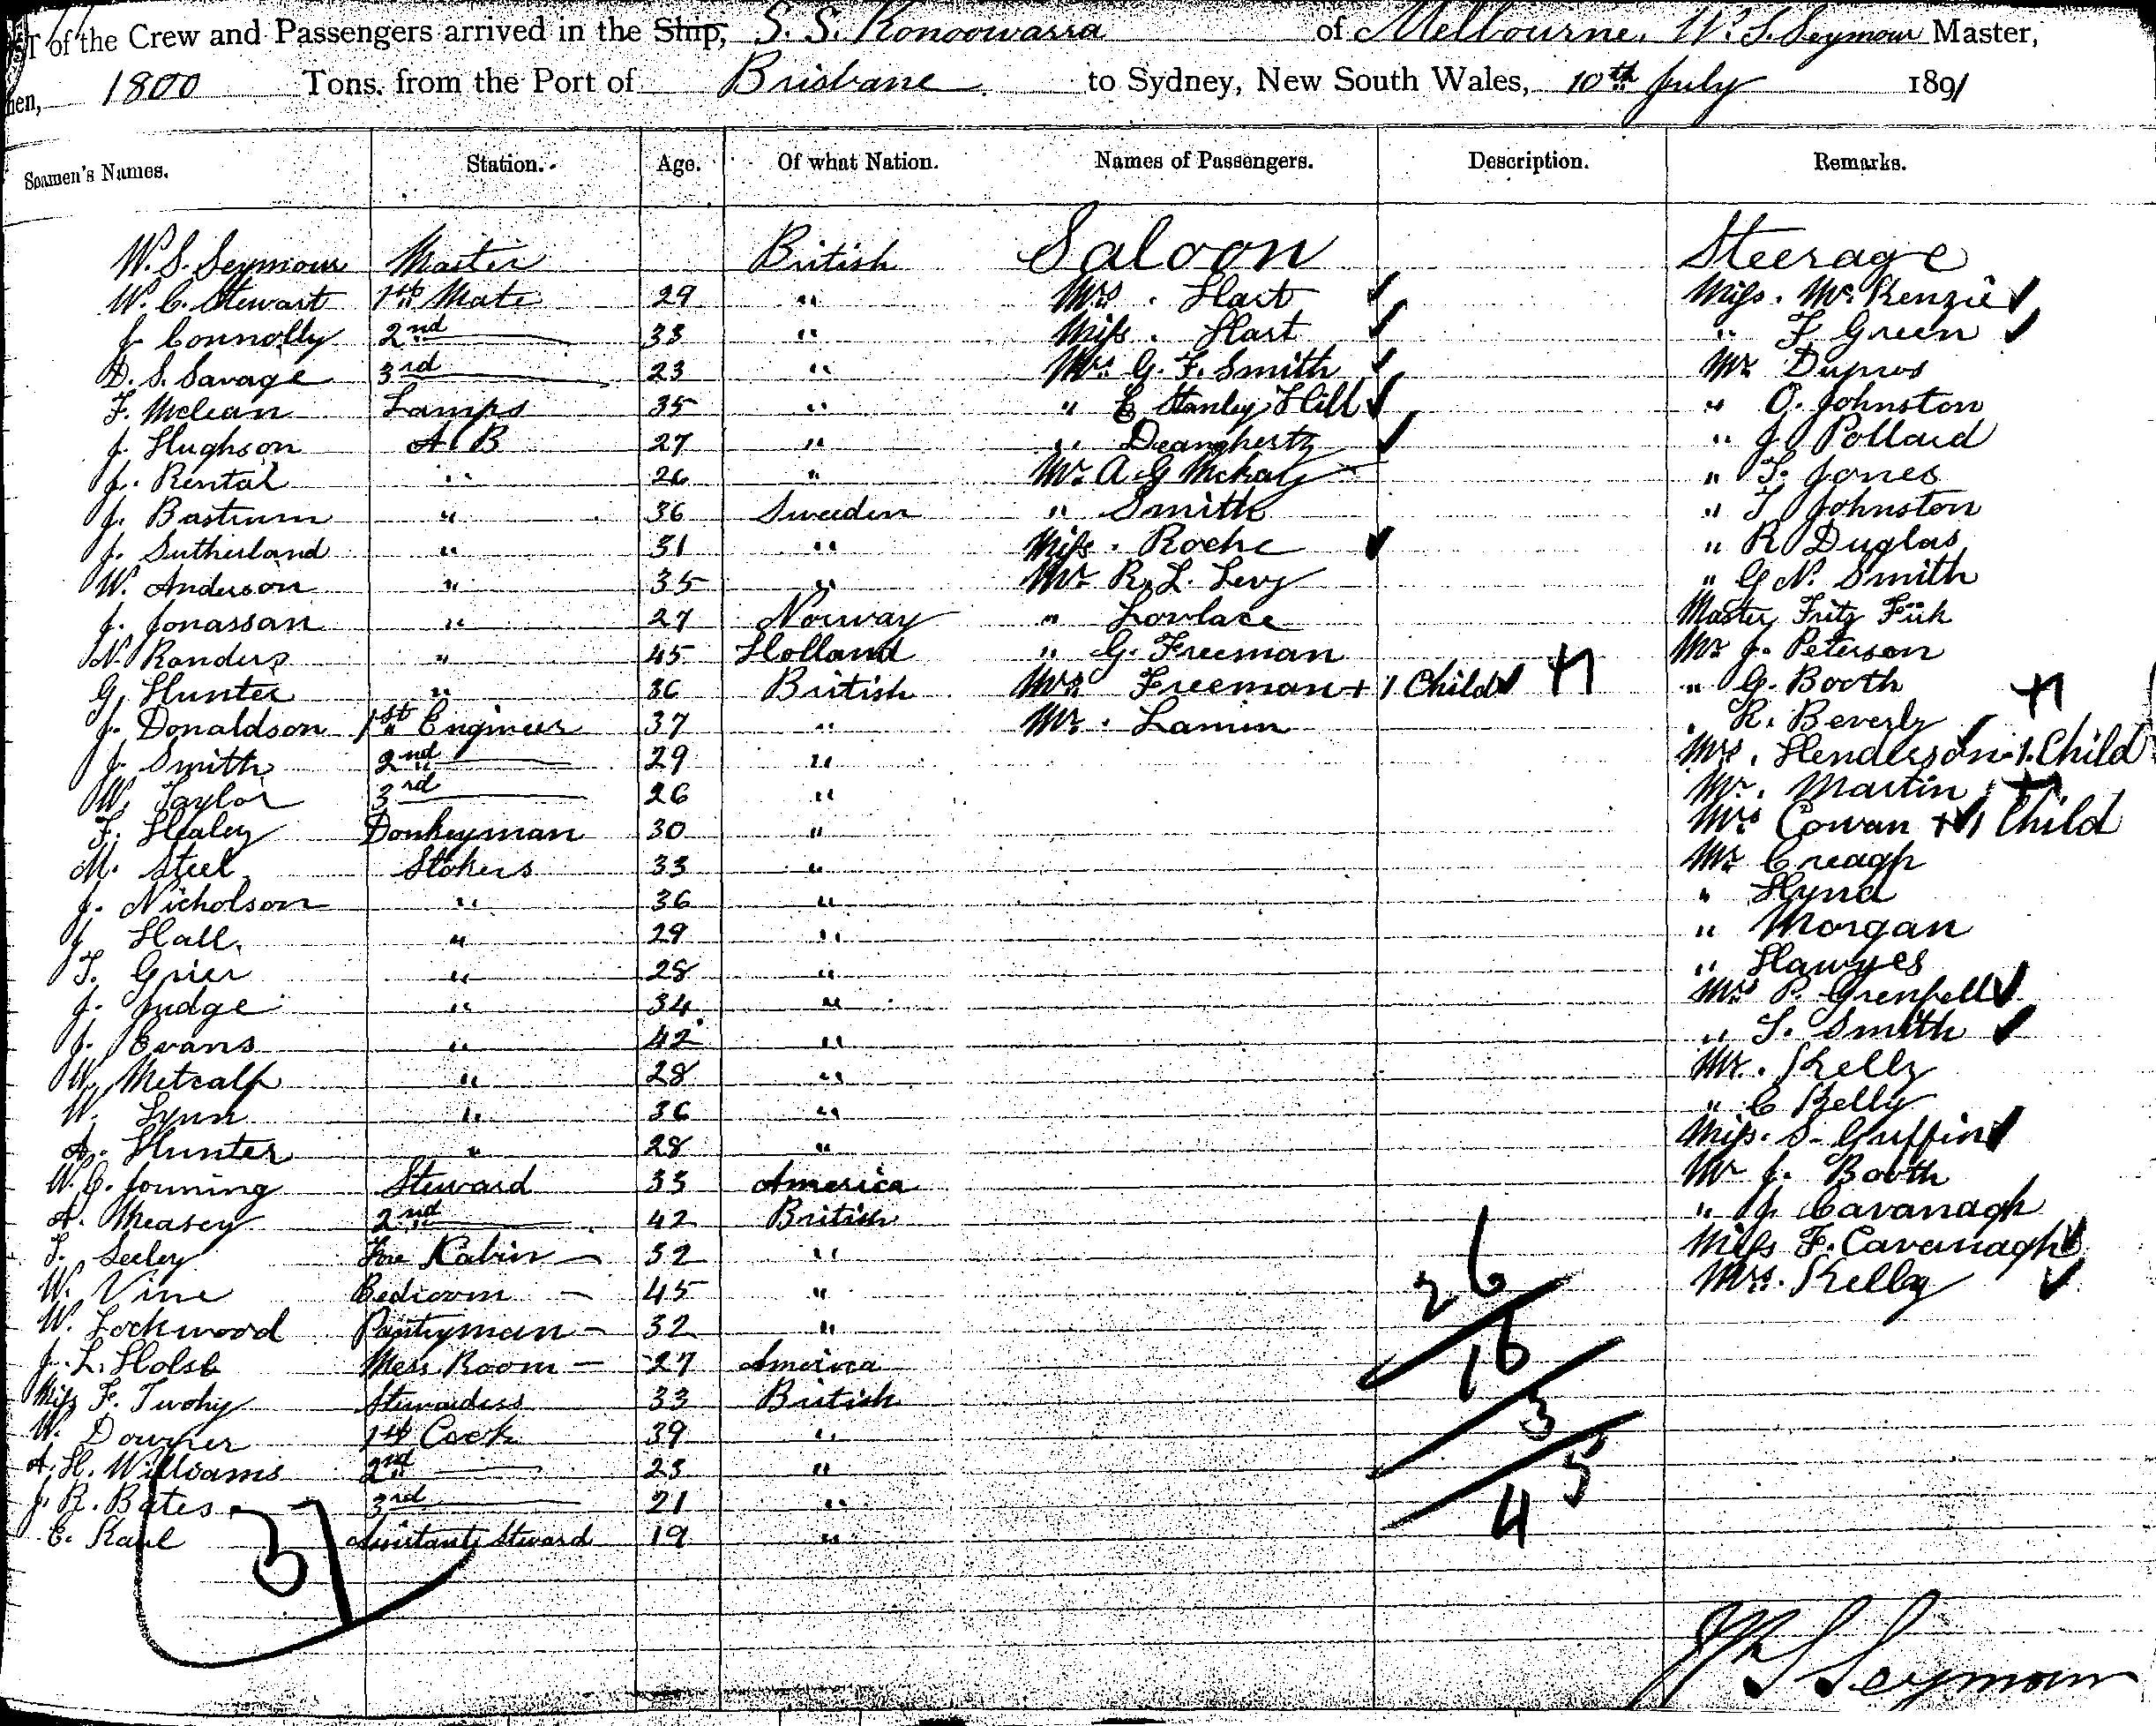 of the Crew and Passengers arrived in the Ship, S. S. Konoowarra of Melbourne, W. S. Seymour Master,
1800 Tons, from the Port of Brisbane to Sydney, New South Wales, 10th July 1891
Seamen's Names. Station. Age. Of what Nation. Names of Passengers. Description. Remarks.
W. S. Seymour Master British Saloon Steerage
W. C. Stewart 1st Mate 29 " Mrs. Hart Miss. McKenzie
J. Connolly 2nd 33 " Miss. Hart " F. Green
D. S. Savage 3rd 23 " Mrs. G. F. Smith Mr
F. Mclean Lamps 35 " " E Stanley Hill " O. Johnston
J. Hughson A. B 27 " " " J. Pollard
J. Rental " 26 " Mr. A G McKay " T. Jones
J. Bastrum " 36 Sweeden " Smith " T Johnston
J. Sutherland " 31 " Miss. Roche " R Duglas
W. Anderson " 35 " Mr R. L. Levy " G N. Smith
J. Jonassan " 27 Norway " Lovlace Master Fritz
N. Randers " 45 Holland " G. Freeman Mr J. Peterson
G. Hunter " 36 British Mrs Freeman + 1 Child +1 " G. Booth +1
J. Donaldson 1st Engineer 37 " Mr. Lamin " R. Beverly
J. Smith 2nd 29 " Mrs. Henderson 1. Child
W. Taylor 3rd 26 " Mr. Martin +1
F. Healey Donkeyman 30 " Mrs Cowan + 1 Child
M. Steel Stokers 33 " Mr Creagh
J. Nicholson " 36 " " Hynd
J. Hall. " 29 " " Morgan
T. Grier " 28 " " Hawyes
J. Judge " 34 " Mrs P. Grenfell
J. Evans " 42 " " T. Smith
W. Metcalf " 28 " Mr. Kelly
W. Lynn " 36 " " C Kelly
A. Hunter " 28 " Miss. S. Guffin
W. C. Jonning Steward 33 America Mr J. Booth
A. Measey 2nd 42 British " J. Cavanagh
T. Seeley Fore Kabin 52 " Miss F. Cavanagh
W. Vine Bedroom 45 " Mrs. Kelly
W. Lockwood Pantryman 32 "
J. L. Holst Mess Room 27 America
Miss F. Twohy Stewardess 33 British
W. Downer 1st Cook 39 "
A. H. Williams 2nd 23 "
J. R. Bates 3rd 21 "
C. Karl Assistant Steward 19 "
37
26
16
3
5
4
W S Seymour